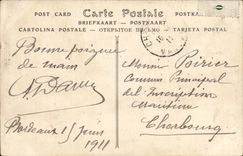 POST CARD Carte Postale POSTKARTE
BRIEFKAART — POSTKAART
CARTOLINA POSTALE — ОТКРЫТОЕ ПИСЬМО — TARJETA POSTAL
Bonne poignée
de main
Bordeaux 15 juin
1911
Monsieur Poirier
Commis Principal
de l'Inscription
Maritime
Cherbourg